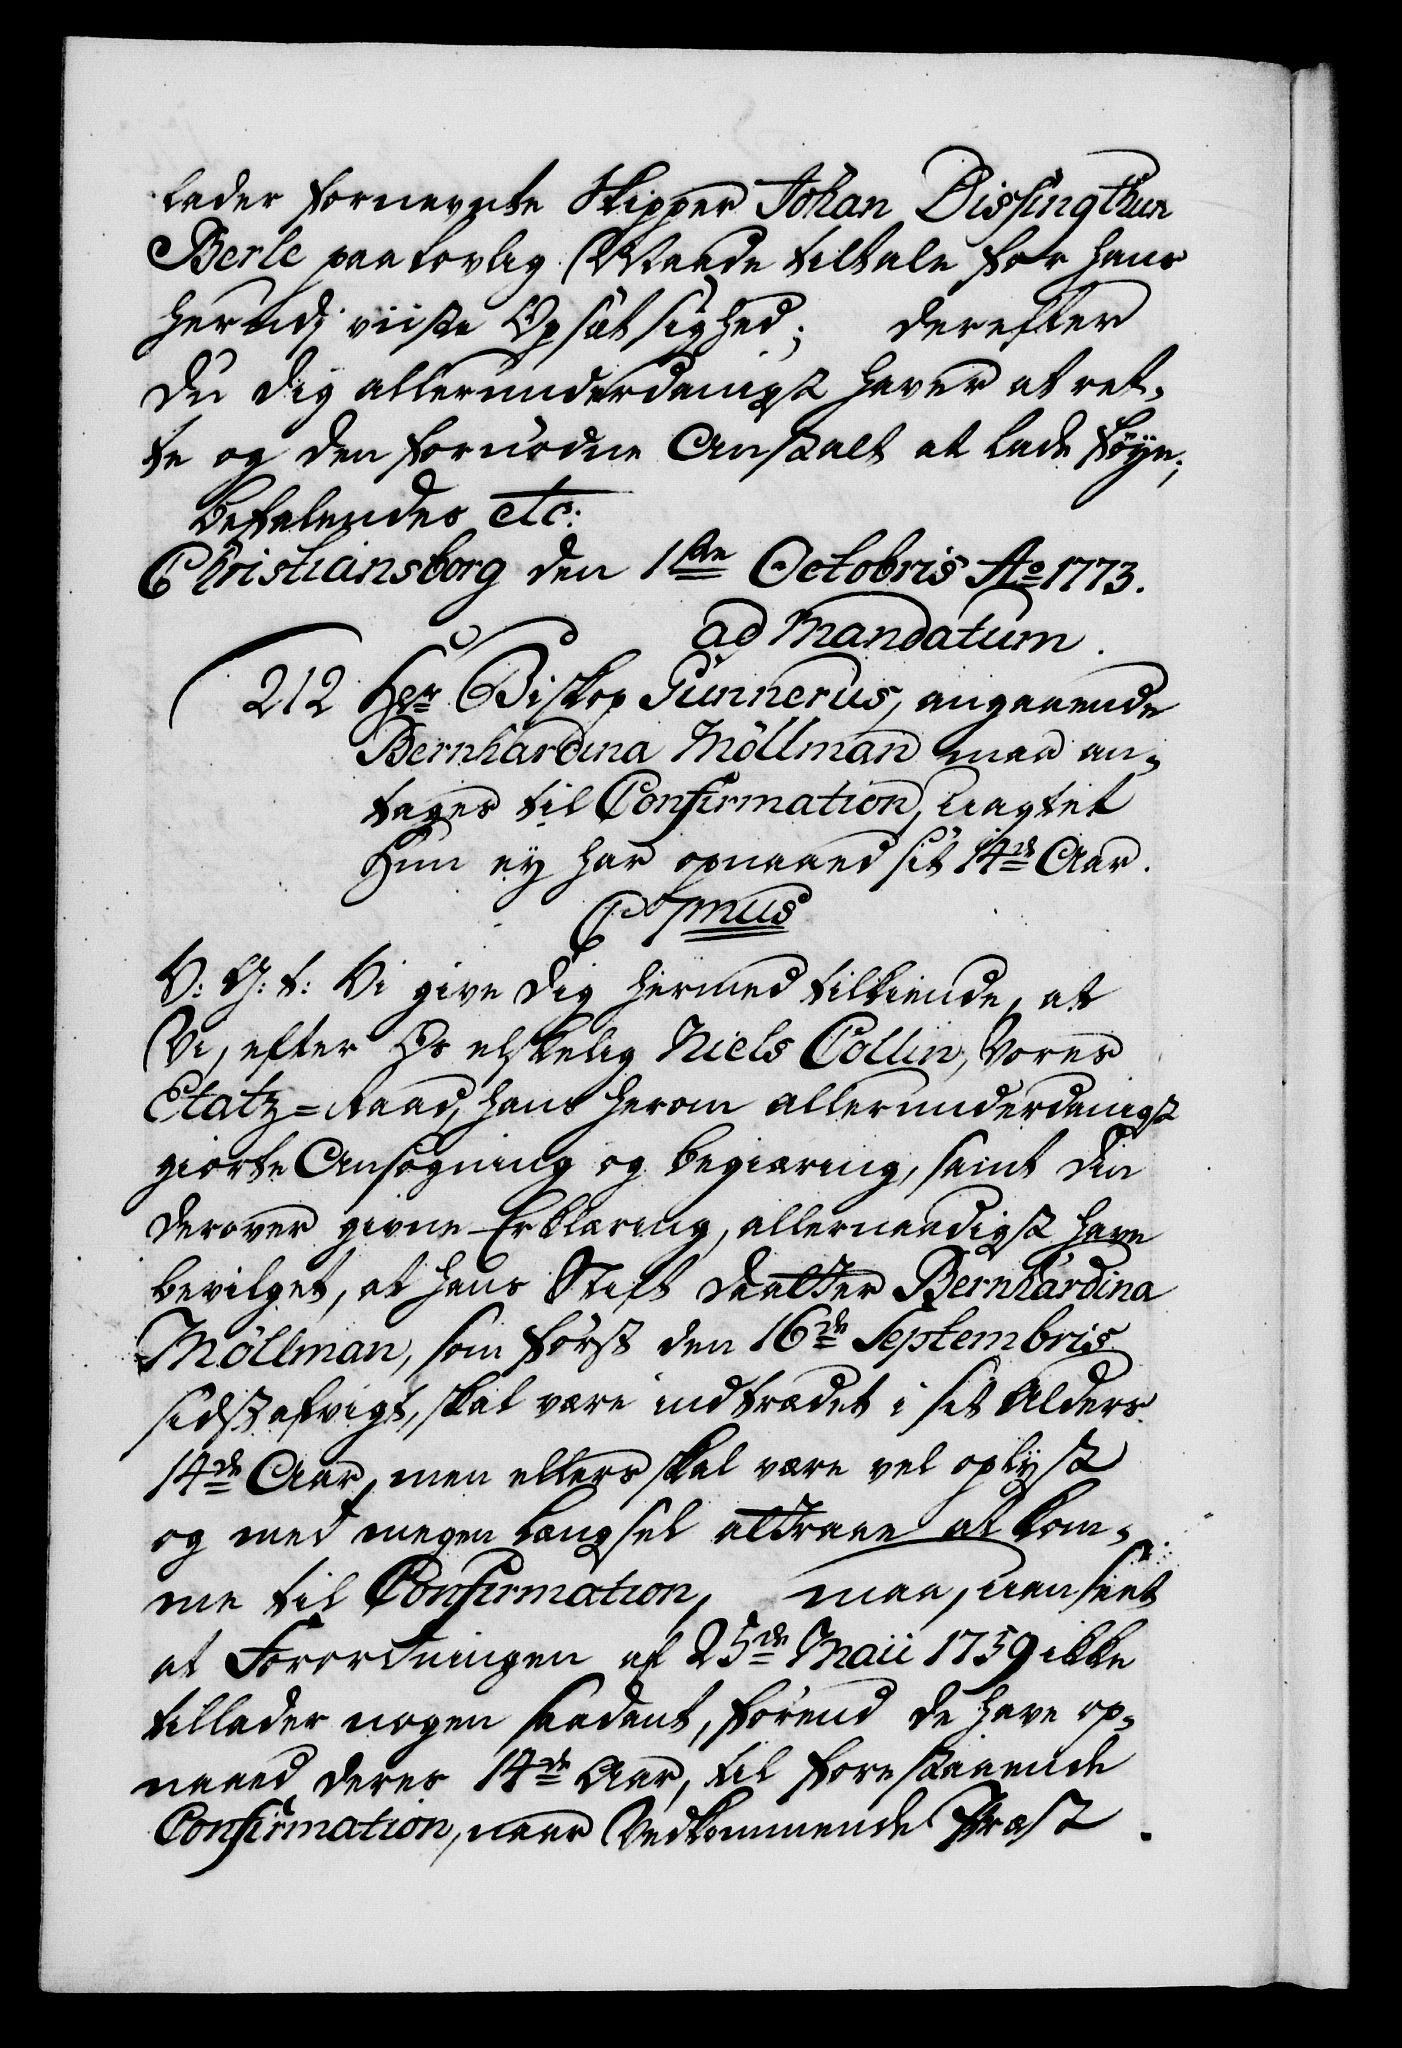 lader fornevnte Skipper Johan Dissingthun
Berle paa lovlig Maade tiltale for hans
herudj viiste Opsætsighed; derefter
du dig allerunderdanigst haver at ret-
te og den fornødne Anstalt at lade føye;
befalendes etc:
Christiansborg den 1ste Octobris Ao 1773.
ad Mandatum.
212 Hr Biskop Gunnerus, angaaende
Bernhardina Möllman maa an-
tages til Confirmation, uagtet
Hun ey har opnaaed sit 14de Aar.
C 7mus
V: G: t: Vi give dig hermed tilkiende, at
Vi, efter Os elskelig Niels Collin, Vores
Etatz-Raad, hans herom allerunderdanigst
giorte Ansøgning og begiæring, samt din
derover givne Erklæring, allernaadigst have
bevilget, at hans Stift daatter Bernhardina
Möllman, som først den 16de Septembris
sidst afvigt, skal være indtrædet i sit Alders
14de Aar, men ellers skal være vel oplyst
og med megen længsel attraae at kom-
me til Confirmation, maa, uanseet
at Forordningen af 25de Maii 1759 ikke
tillader nogen saadant, førend de have op-
naaed deres 14de Aar, til forestaaende
Confirmation, naar Vedkommende Præst